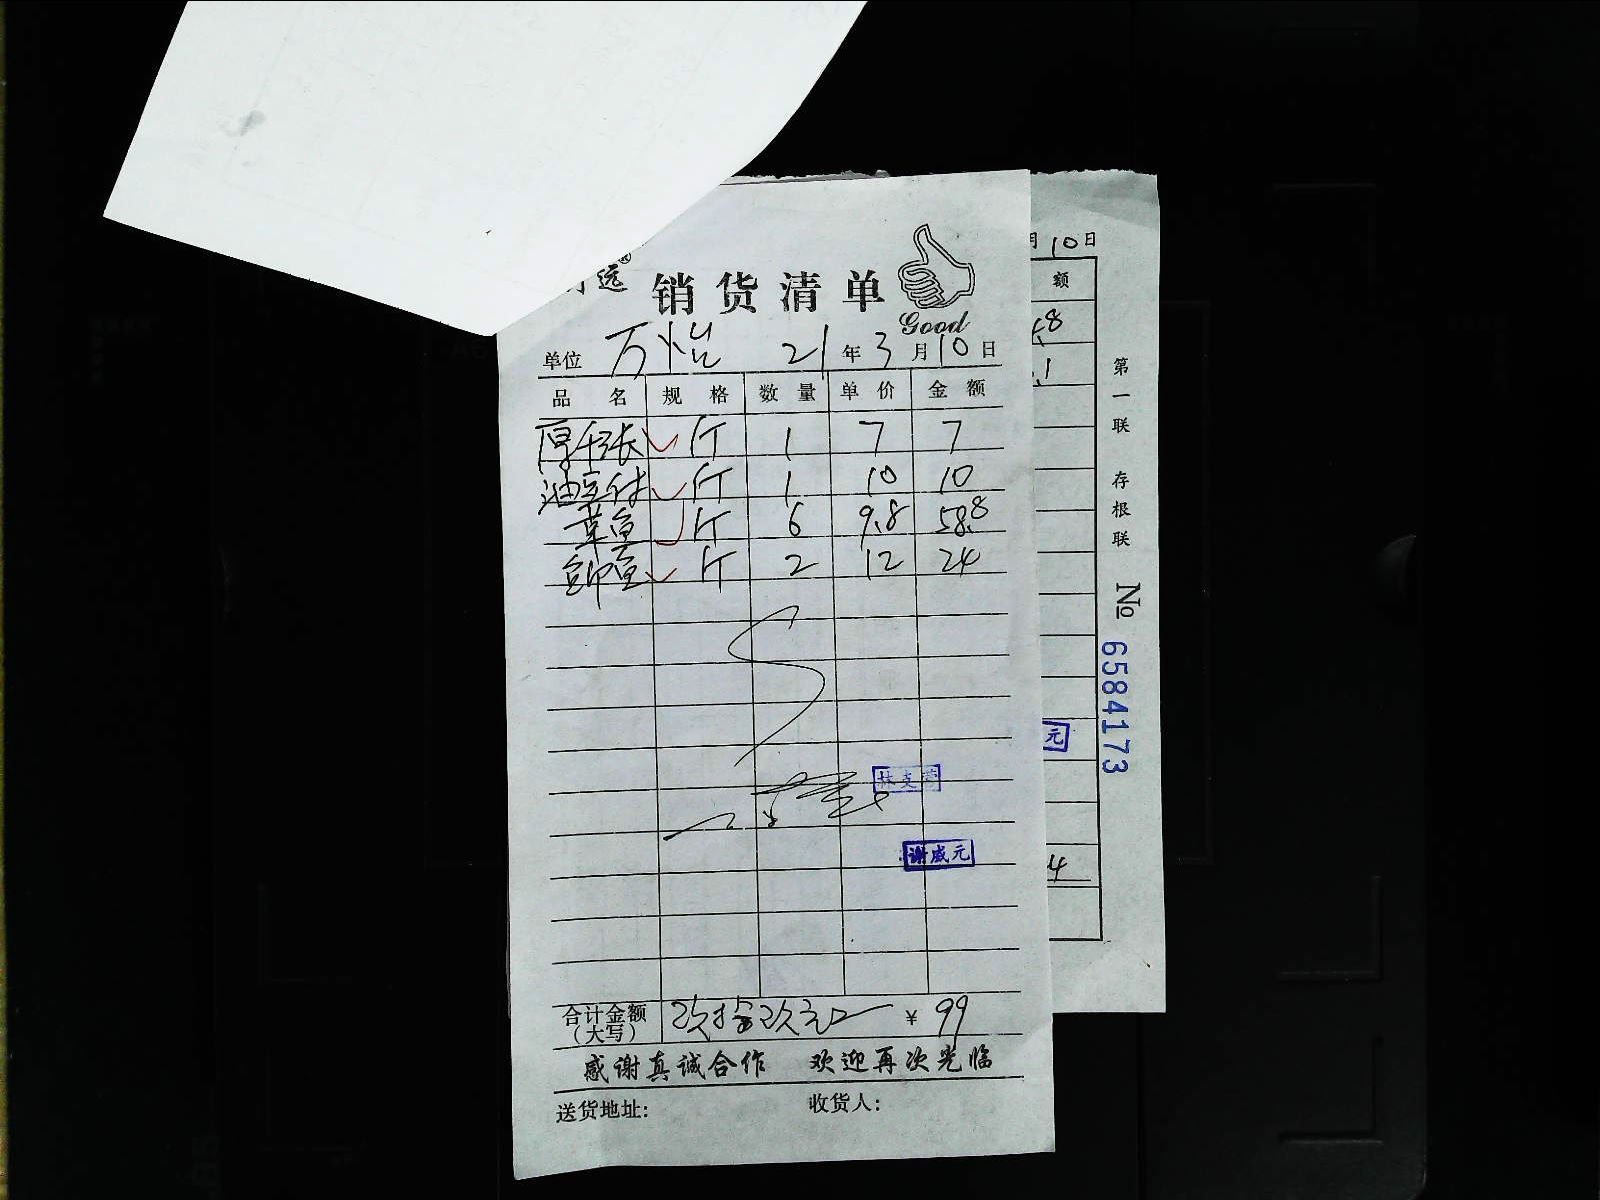 远®
销货清单
Good
单位 万怡 21年3月10日
品名 规格 数量 单价 金额
厚千张 斤 1 7 7
油豆付 斤 1 10 10
草鱼 斤 6 9.8 58.8
斤 2 12 24
林支
谢威元
合计金额（大写） 玖拾玖元 ¥ 99
感谢真诚合作 欢迎再次光临
送货地址: 收货人:
月10日
额
.8
.1
元
4
第一联 存根联
No 6584173